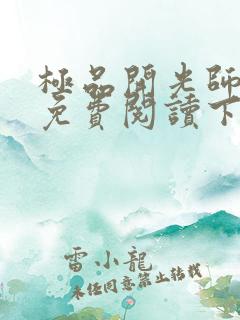 極品開光師
免費閱讀下
雷小龍
未经同意禁止转载